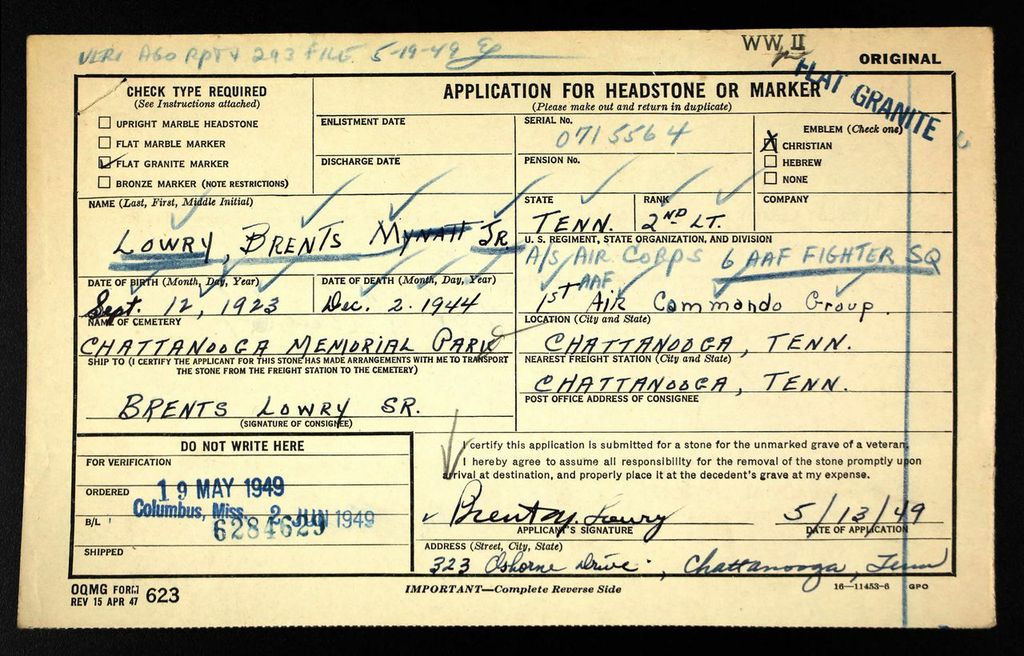 VERI AGO RPT 4 293 FILE 5-19-49
WW II
ORIGINAL
FLAT GRANITE
CHECK TYPE REQUIRED
(See Instructions attached)
UPRIGHT MARBLE HEADSTONE
FLAT MARBLE MARKER
FLAT GRANITE MARKER
BRONZE MARKER (NOTE RESTRICTIONS)
APPLICATION FOR HEADSTONE OR MARKER
(Please make out and return in duplicate)
ENLISTMENT DATE
DISCHARGE DATE
SERIAL No.
0715564
PENSION No.
EMBLEM (Check one)
X CHRISTIAN
HEBREW
NONE
NAME (Last, First, Middle Initial)
LOWRY, BRENTS MYNATT JR.
STATE
TENN.
RANK
2ND LT.
COMPANY
U. S. REGIMENT, STATE ORGANIZATION, AND DIVISION
A/S AIR CORPS 6 AAF FIGHTER SQ
AAF
1ST Air Commando Group.
DATE OF BIRTH (Month, Day, Year)
Sept. 12, 1923
DATE OF DEATH (Month, Day, Year)
Dec. 2. 1944
NAME OF CEMETERY
CHATTANOOGA MEMORIAL PARK
LOCATION (City and State)
CHATTANOOGA, TENN.
SHIP TO (I CERTIFY THE APPLICANT FOR THIS STONE HAS MADE ARRANGEMENTS WITH ME TO TRANSPORT
THE STONE FROM THE FREIGHT STATION TO THE CEMETERY)
NEAREST FREIGHT STATION (City and State)
CHATTANOOGA, TENN.
BRENTS LOWRY SR.
(SIGNATURE OF CONSIGNEE)
POST OFFICE ADDRESS OF CONSIGNEE
DO NOT WRITE HERE
FOR VERIFICATION
ORDERED
19 MAY 1949
Columbus, Miss. 2 JUN 1949
B/L
6284629
SHIPPED
I certify this application is submitted for a stone for the unmarked grave of a veteran.
I hereby agree to assume all responsibility for the removal of the stone promptly upon
arrival at destination, and properly place it at the decedent's grave at my expense.
Brents M. Lowry
APPLICANT'S SIGNATURE
5/13/49
DATE OF APPLICATION
ADDRESS (Street, City, State)
323 Osborne Drive, Chattanooga, Tenn
OQMG FORM
REV 15 APR 47 623
IMPORTANT—Complete Reverse Side
16—11453-6 GPO